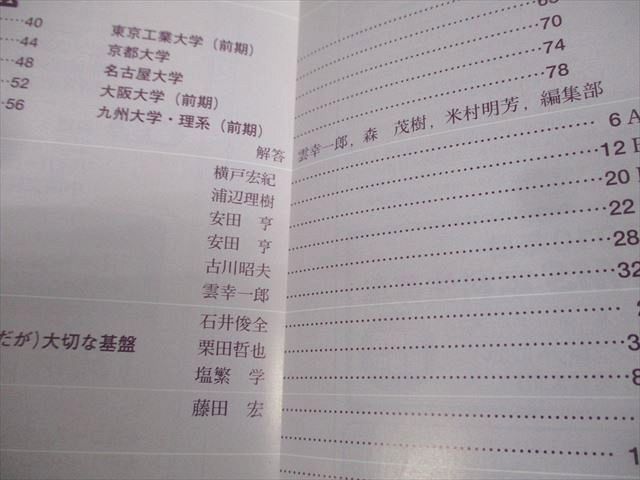 40 東京工業大学（前期）
44 京都大学 70
48 名古屋大学 74
52 大阪大学（前期） 78
56 九州大学・理系（前期）
解答 雲幸一郎，森 茂樹，米村明芳，編集部
横戸宏紀 6
浦辺理樹 12
安田 亨 20
安田 亨 22
古川昭夫 28
雲幸一郎 32
石井俊全
だが）大切な基盤 栗田哲也 3
塩繁 学 8
藤田 宏
1